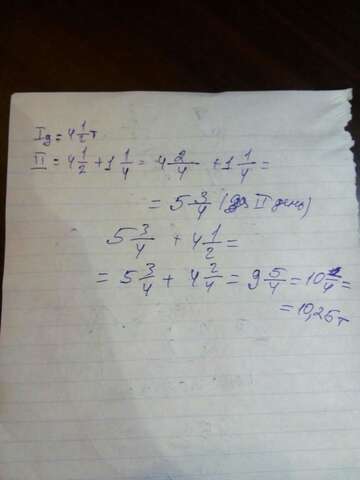 Iд = 4 1/2 т
II = 4 1/2 + 1 1/4 = 4 2/4 + 1 1/4 =
= 5 3/4 (за II день)
5 3/4 + 4 1/2 =
= 5 3/4 + 4 2/4 = 9 5/4 = 10 1/4 =
= 10,25 т